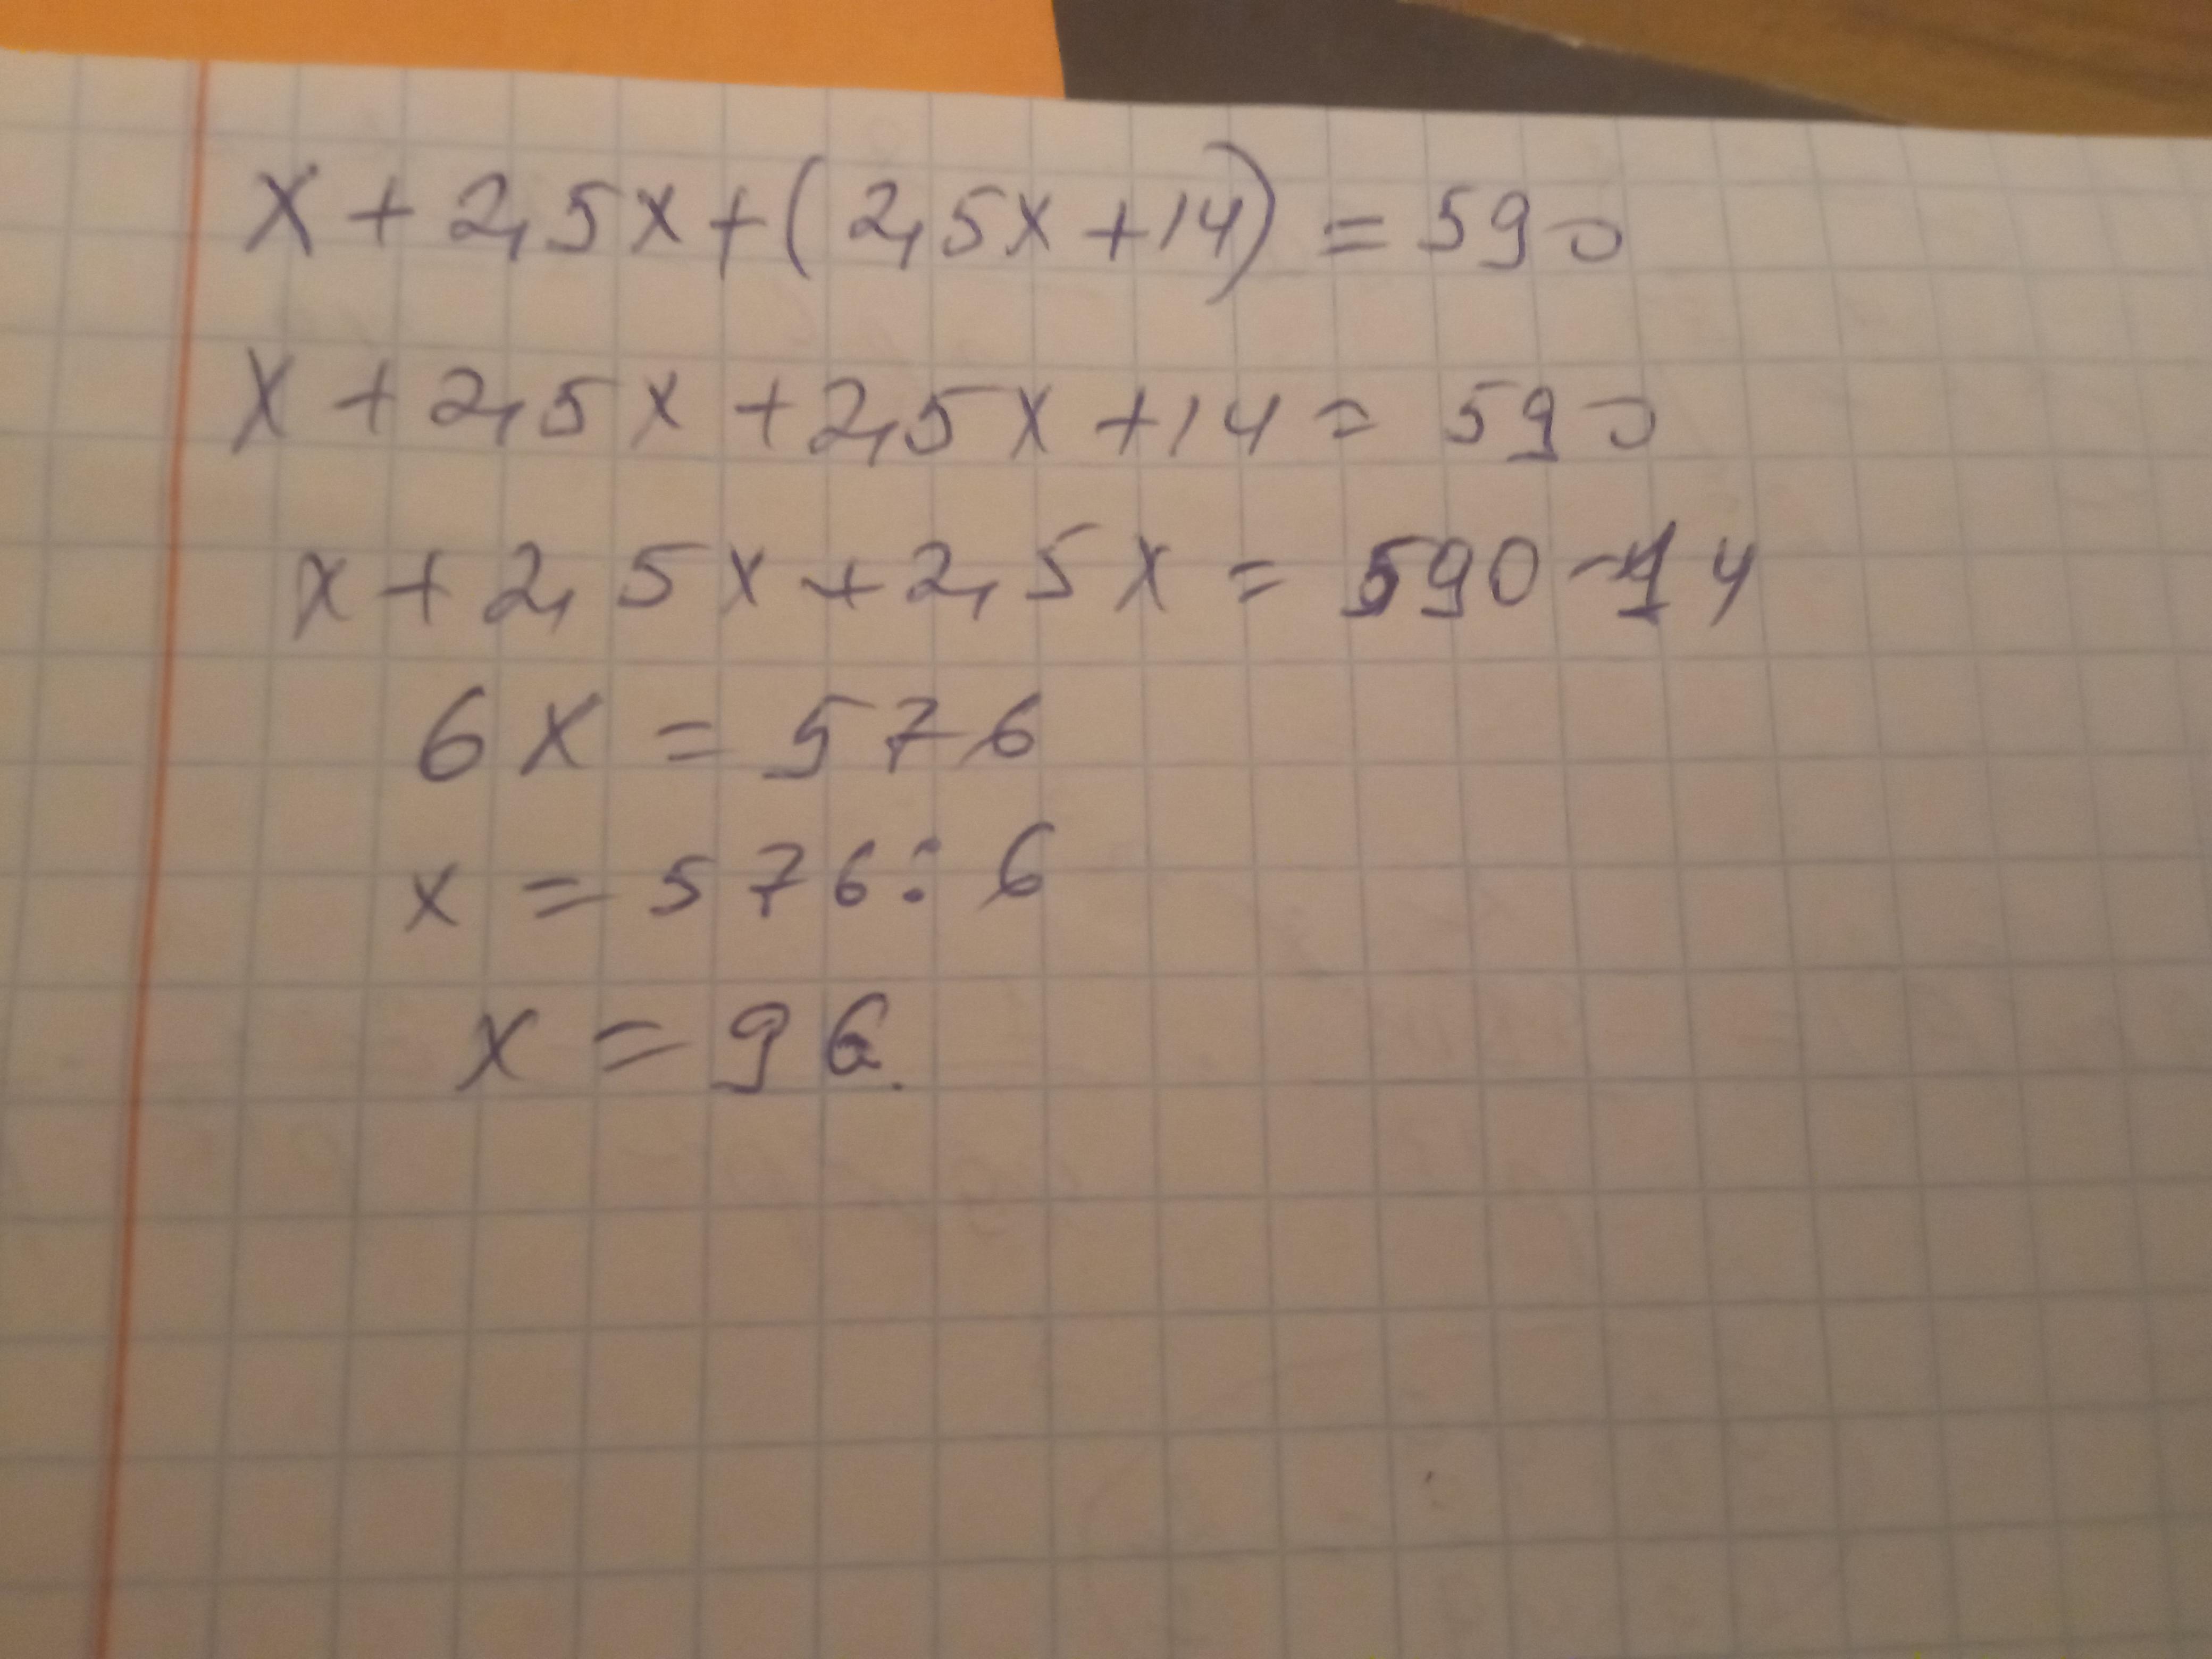 x + 2,5x + (2,5x + 14) = 590
x + 2,5x + 2,5x + 14 = 590
x + 2,5x + 2,5x = 590 - 14
6x = 576
x = 576 : 6
x = 96.